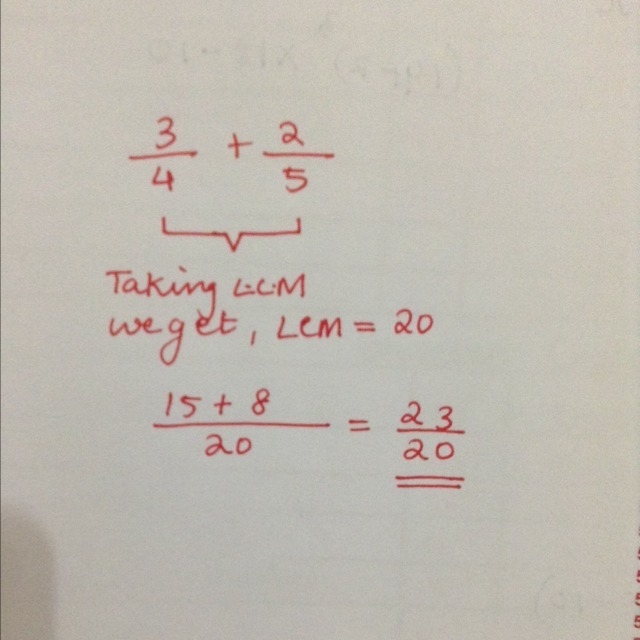 3/4 + 2/5
Taking L.C.M
we get, LCM = 20
15 + 8/20 = 23/20